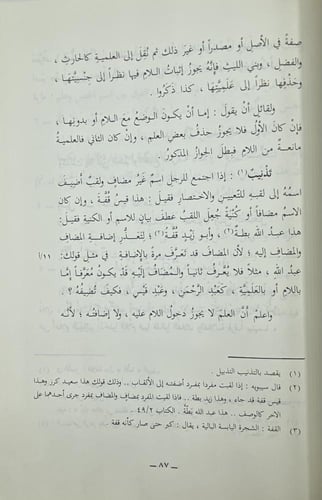 صفة في الأصل أو مصدراً أو غير ذلك ثم نُقل إلى العلمية كالحارث ،
والفضل ، وبني الليث فإنّه يجوز إثبات اللام فيها نظراً إلى جنسيّتها ،
وحذفها نظراً إلى علميّتها ، كذا ذكروا .
ولقائلٍ أنْ يقول : إما أنْ يكون الوضع مع اللام أو بدونها ،
فإن كان الأوّل فلا يجوز حذف بعض العلم ، وإن كان الثاني فالعلمية
مانعة من اللام فبطل الجواز المذكور .
تذنيب (١) : إذا اجتمع للرجل اسم غير مضاف ولقب أضيف
اسمه إلى لقبه للتعيين والاختصار فقيل : هذا قيس قُفّة ، وإن كان
الاسم مضافاً أو كنية جُعل اللقب عطف بيان للاسم أو الكنية فقيل :
هذا عبد الله بطة (٢) ، وأبو زيد قُفّة (٣) ؛ لتعذر إضافة المضاف
والمضاف إليه ؛ لأن المضاف قد تعرّف مرة بالإضافة . في مثل قولك : ١١/أ
عبد الله ، مثلاً فلا يُعرّف ثانياً والمضاف إليه قد يكون مُعرّفاً إمّا
باللام أو بالعلمية ، كعبد الرحمن ، وعبد قيس ، فكيف تُضيفه ؟ .
وأعلم أنّ العلم لا يجوز دخول اللام عليه ، ولا إضافته ؛ لأنّه
(١) يقصد بالتذنيب التذييل .
(٢) قال سيبويه : إذا لقبت مفرداً بمفرد أضفته إلى الألقاب .. وذلك قولك هذا سعيد كرز وهذا
قيس قفة قد جاء ، وهذا زيد بطة .. فإذا لقبت المفرد بمضاف والمضاف بمفرد جرى أحدهما على
الآخر كالوصف .. هذا عبد الله بطة . الكتاب ٤٩/٢ .
(٣) القفة : الشجرة اليابسة البالية ، يقال : كبر حتى صار كأنه قفة
ــ ٨٧ ــ